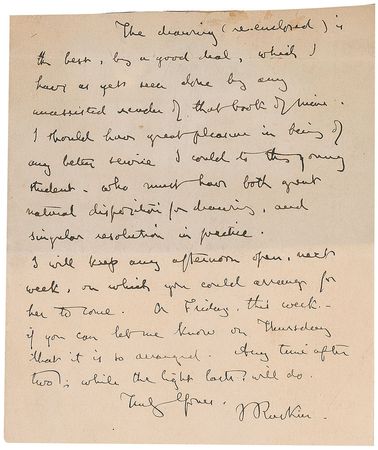 The drawing (re-enclosed) is
the best, by a good deal, which I
have as yet seen done by any
unassisted reader of that book of mine.
I should have great pleasure in being of
any better service I could to this young
student - who must have both great
natural disposition for drawing, and
singular resolution in practice.
I will keep any afternoon open, next
week, on which you could arrange for
her to come. Or Friday, this week -
if you can let me know on Thursday
that it is so arranged. Any time after
two; while the light lasts; will do.
Truly Yours.
J Ruskin.